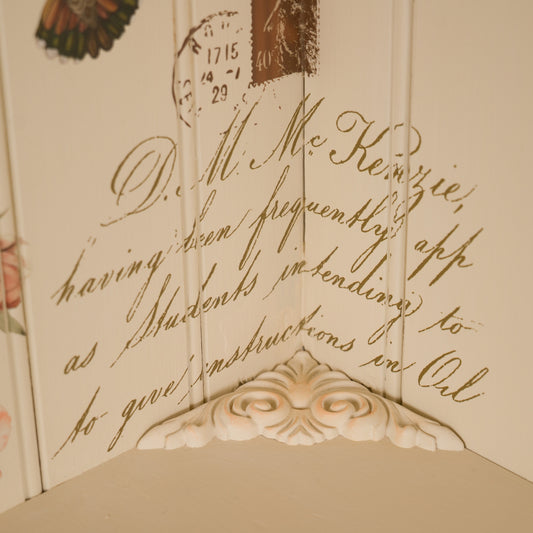 1715
24 - 1
29
40
D. M. McKenzie,
having been frequently app
as Students intending to
to give instructions in Oil